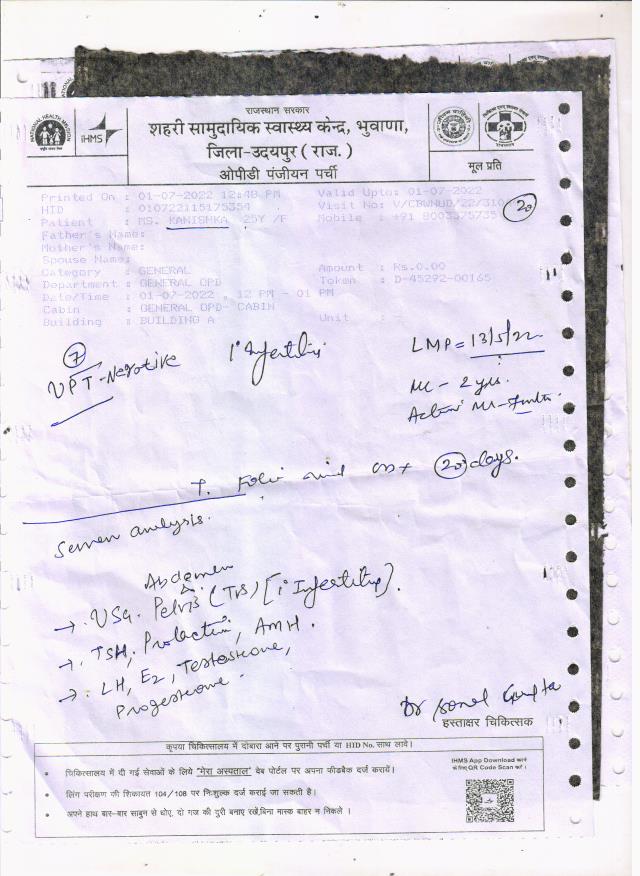 राजस्थान सरकार
शहरी सामुदायिक स्वास्थ्य केन्द्र, भुवाणा,
जिला-उदयपुर ( राज. )
ओपीडी पंजीयन पर्ची
NATIONAL HEALTH MISSION
iHMS
मूल प्रति
Printed On : 01-07-2022 12:48 PM
Valid Upto: 01-07-2022
HID : 010722115175354
Visit No: V/CBWNUD/22/310
20
Patient : MS. KANISHKA 25Y /F
Mobile : +91 8003575735
Father's Name:
Mother's Name:
Spouse Name:
Category : GENERAL
Amount : Rs.0.00
Department : GENERAL OPD
Token : D-45292-00165
Date/Time : 01-07-2022 , 12 PM - 01 PM
Cabin : GENERAL OPD- CABIN
Building : BUILDING A
Unit : -
7
UPT-Negative
1° Infertility
LMP = 13/5/22
ML - 2 yrs.
Active ML-
T. Folic acid 20 days.
Semen analysis.
Abdomen
→ USG. Pelvis (TVS) [1° Infertility].
→ TSH, Prolactin, AMH.
→ LH, E2, Testosterone,
Progesterone.
Dr Sonal Gupta
हस्ताक्षर चिकित्सक
कृपया चिकित्सालय में दोबारा आने पर पुरानी पर्ची या HID No. साथ लावे।
IHMS App Download करने
के लिए QR Code Scan करें ।
• चिकित्सालय में दी गई सेवाओं के लिये "मेरा अस्पताल" वेब पोर्टल पर अपना फीडबैक दर्ज करायें।
• लिंग परीक्षण की शिकायत 104/108 पर निःशुल्क दर्ज कराई जा सकती है।
• अपने हाथ बार-बार साबुन से धोए, दो गज की दुरी बनाए रखें,बिना मास्क बाहर न निकले ।